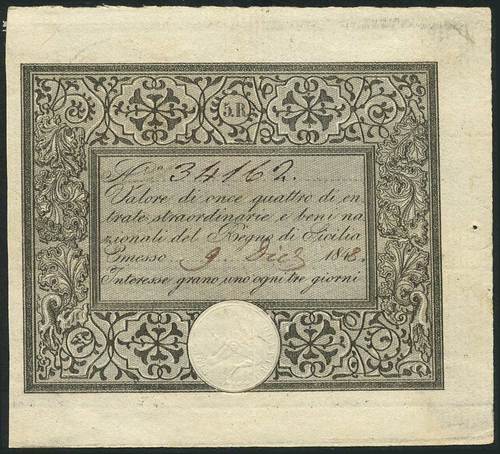 5.R
N.ro 34162.
Valore di once quattro di en
trate straordinarie e beni na
zionali del Regno di Sicilia
Emesso 9. Dic. 1848.
Interesse grano uno ogni tre giorni